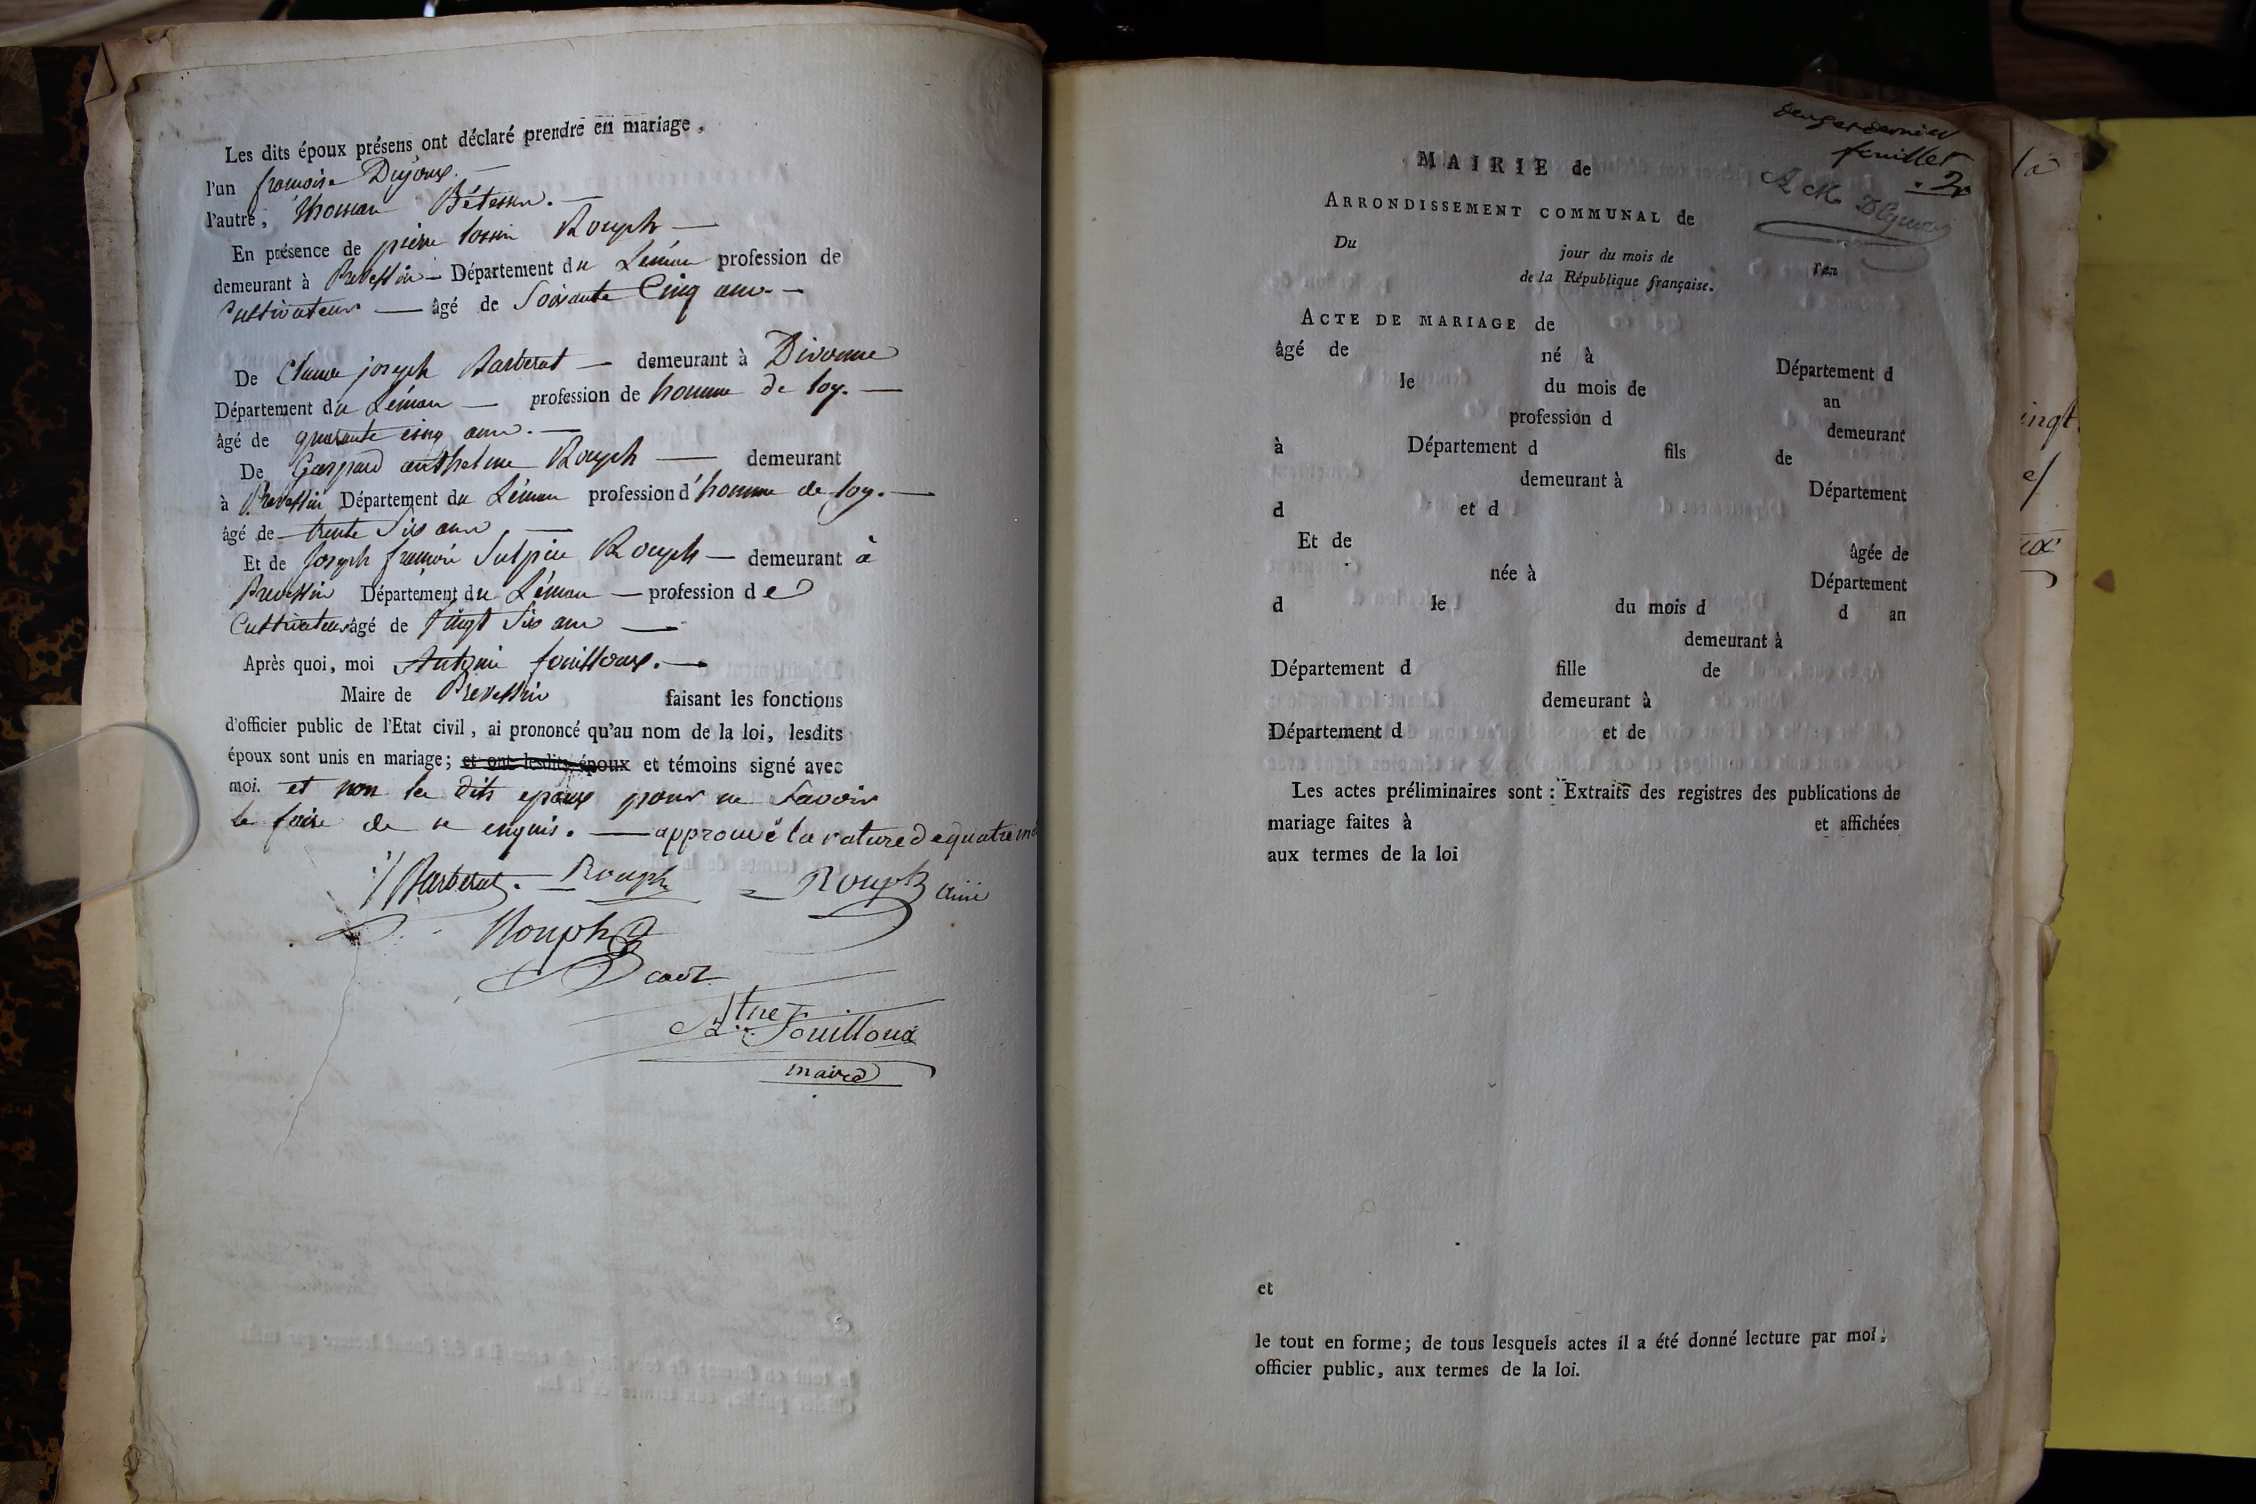 Les dits époux présens ont déclaré prendre en mariage,
l'un françoise Dujoux.
l'autre, Thomas Bétessu.
En présence de pierre Rouph
demeurant à Prevessin Département du Léman profession de
Cultivateur âgé de Soixante Cinq ans.
De Claude joseph Barberat demeurant à Divonne
Département du Léman profession de homme de loy.
âgé de quarante cinq ans.
De Gaspard anthelme Rouph demeurant
à Prevessin Département du Léman profession d'homme de loy.
âgé de trente Six ans
Et de Joseph françois Sulpice Rouph demeurant à
Prevessin Département du Léman profession de
Cultivateur âgé de Vingt Six ans
Après quoi, moi Antoine fouilloux.
Maire de Prevessin faisant les fonctions
d'officier public de l'Etat civil, ai prononcé qu'au nom de la loi, lesdits
époux sont unis en mariage; et ont lesdits époux et témoins signé avec
moi. et non les dits epoux pour ne Savoir
le faire de ce enquis. approuvé la rature de quatre
Barberat. Rouph Rouph ainé
Rouph
cadt
Atne Fouilloux
maire
deux et dernier
feuillet
2
MAIRIE de
ARRONDISSEMENT COMMUNAL de
Du jour du mois de l'an
de la République française.
ACTE DE MARIAGE de
âgé de né à Département d
le du mois de an
profession d demeurant
à Département d fils de
demeurant à Département
d et d
Et de âgée de
née à Département
d le du mois d d an
demeurant à
Département d fille de
demeurant à
Département d et de
Les actes préliminaires sont : Extraits des registres des publications de
mariage faites à et affichées
aux termes de la loi
et
le tout en forme; de tous lesquels actes il a été donné lecture par moi,
officier public, aux termes de la loi.